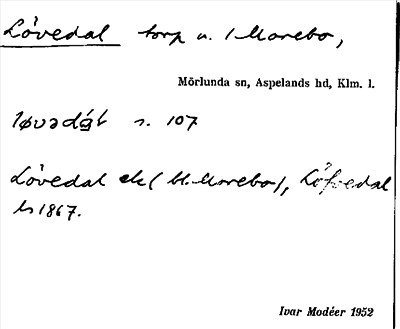 Lövedal torp u. Morebo,
Mörlunda sn, Aspelands hd, Klm. l.
s. 107
Lövedal ek (bl. Morebo), Löfvedal
hs 1867.
Ivar Modéer 1952